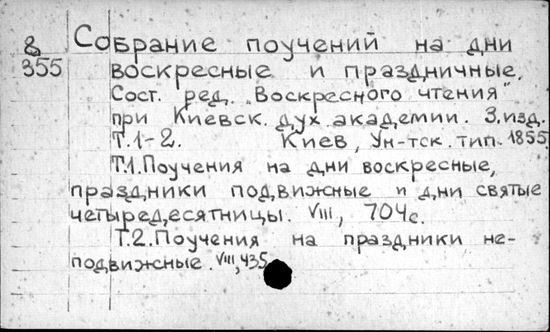 8 Собрание поучений на дни
355 воскресные и праздничные.
Сост. ред. "Воскресного чтения"
при Киевск. дух. академии. 3.изд.
Т.1-2. Киев, Ун-тск. тип. 1855
Т.1. Поучения на дни воскресные,
праздники подвижные и дни святые
четыредесятницы. VIII, 704с.
Т.2. Поучения на праздники не-
подвижные. VIII, 435